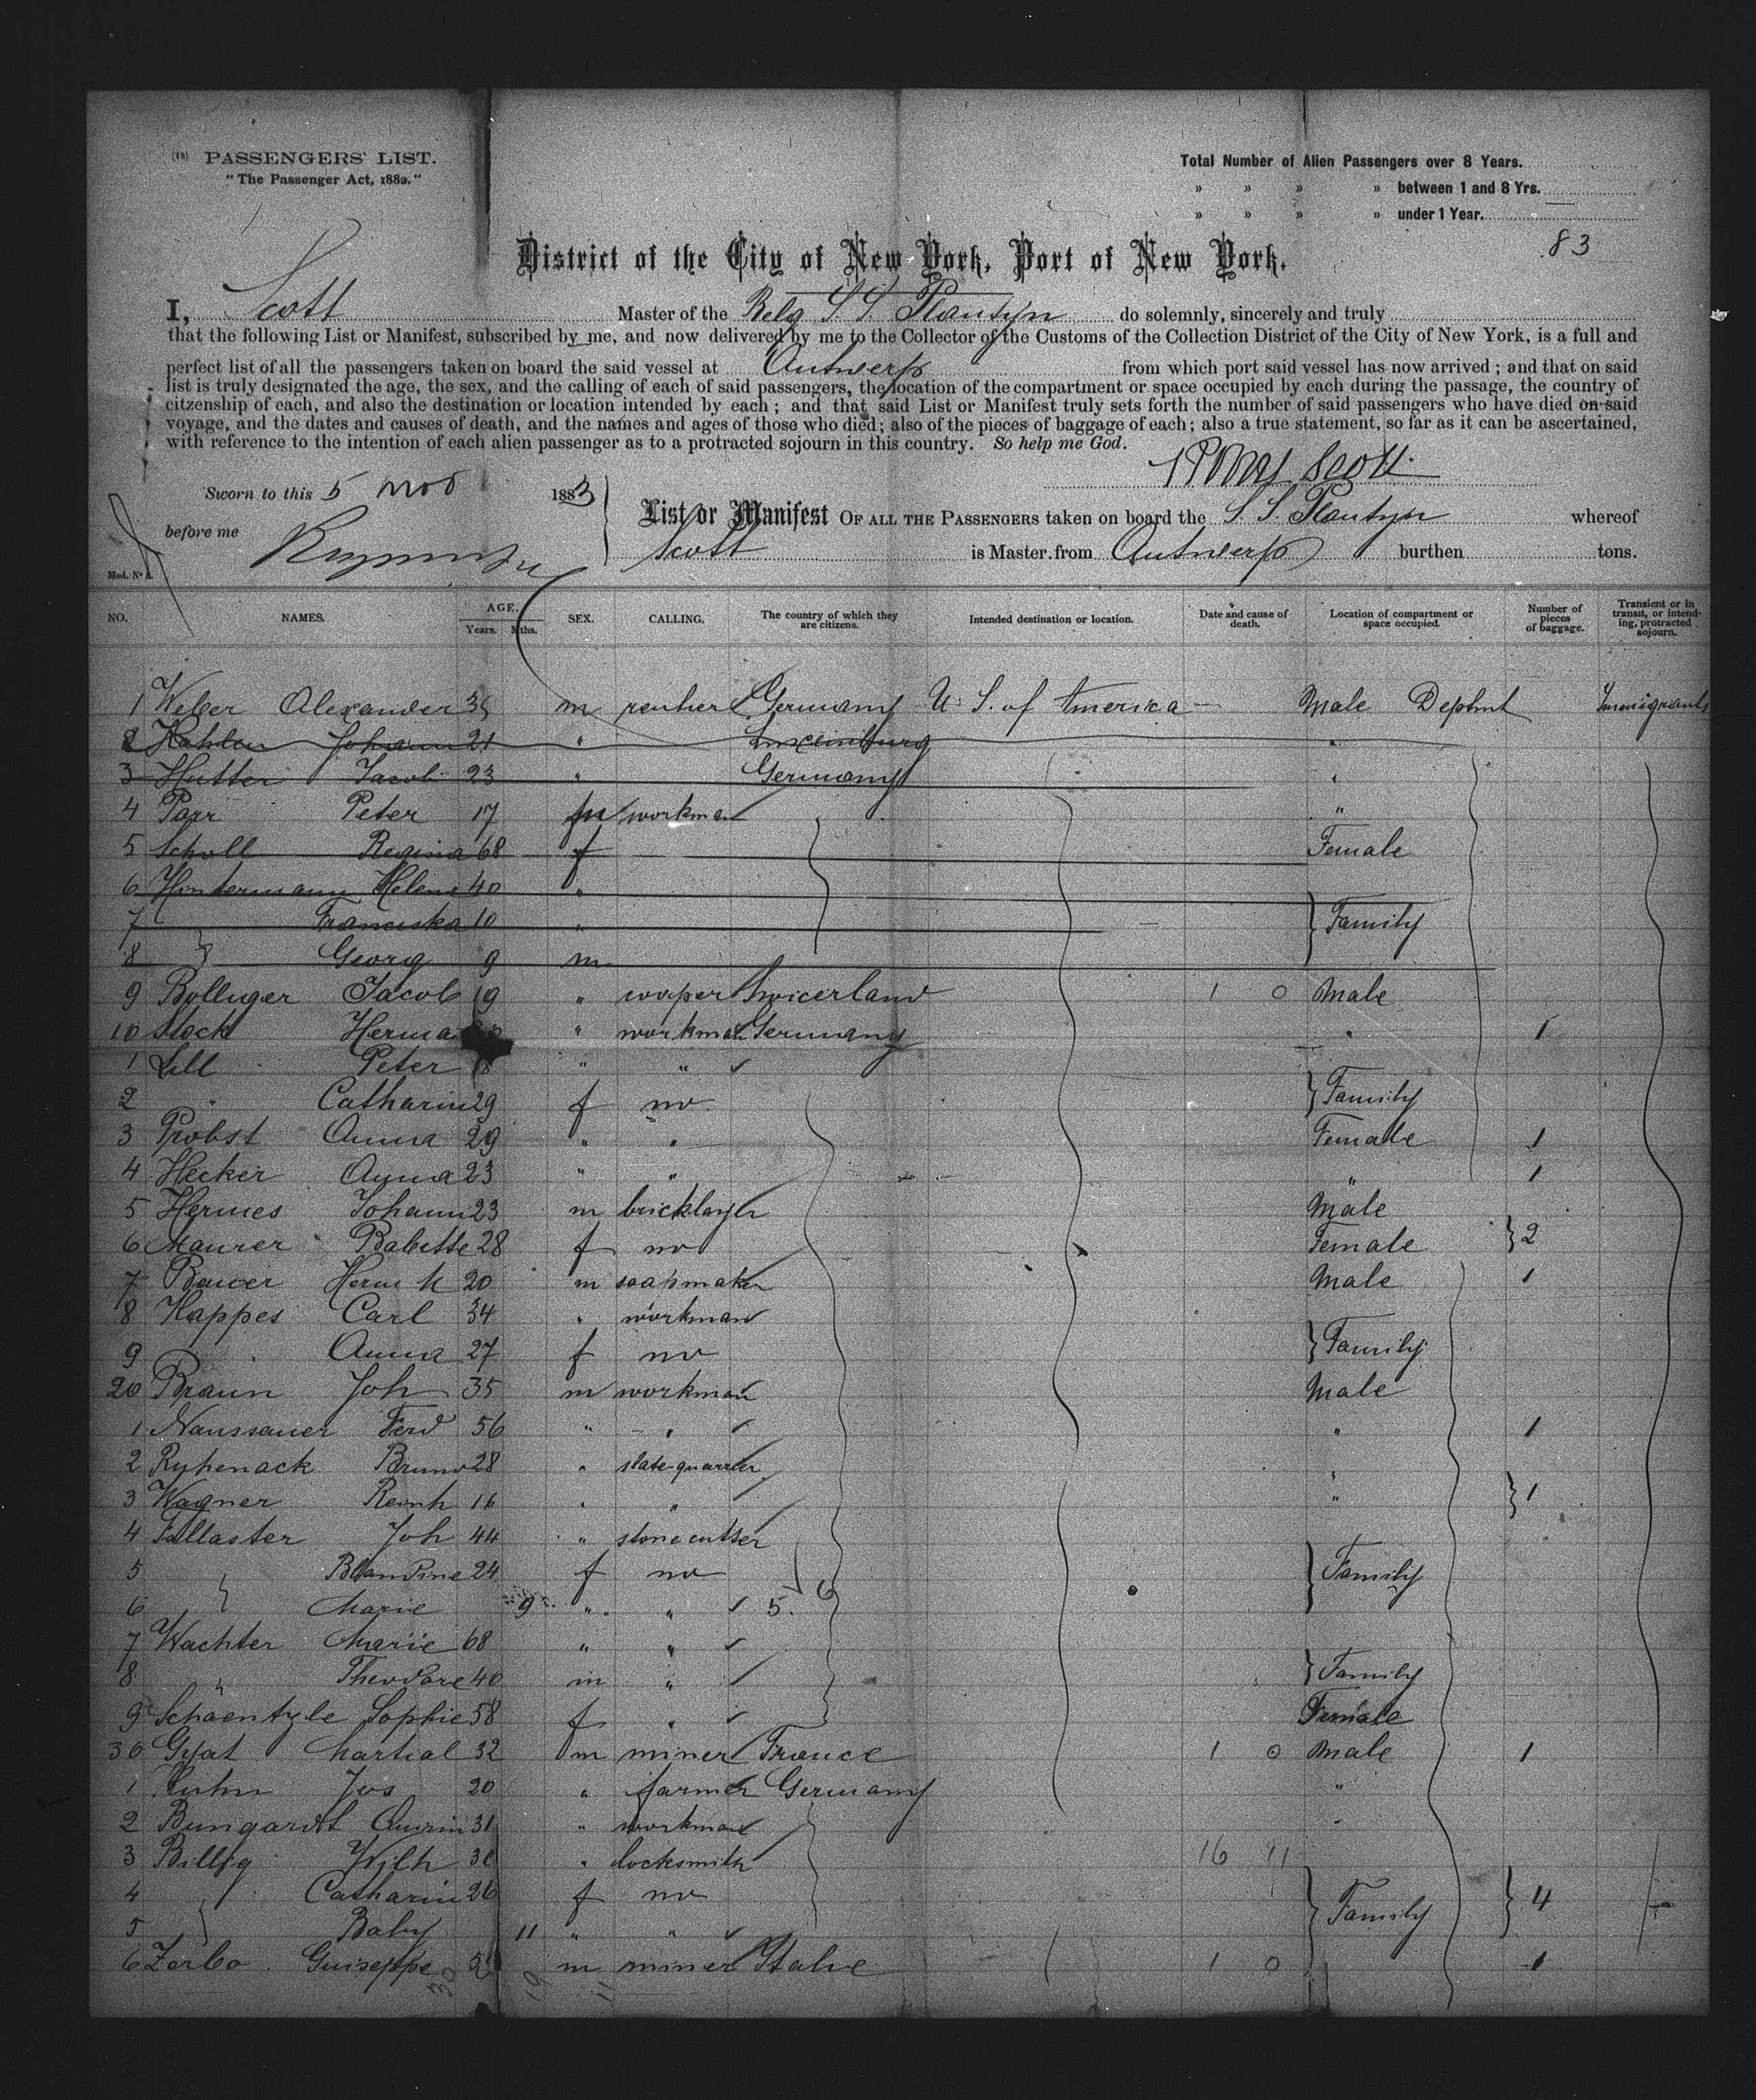 (18) PASSENGERS' LIST.
"The Passenger Act, 1882."
Total Number of Alien Passengers over 8 Years.
" " " " between 1 and 8 Yrs.
" " " " under 1 Year.
83
District of the City of New York, Port of New York.
I, Scott Master of the Belg S.S. Plantyn do solemnly, sincerely and truly
that the following List or Manifest, subscribed by me, and now delivered by me to the Collector of the Customs of the Collection District of the City of New York, is a full and
perfect list of all the passengers taken on board the said vessel at Antwerp from which port said vessel has now arrived ; and that on said
list is truly designated the age, the sex, and the calling of each of said passengers, the location of the compartment or space occupied by each during the passage, the country of
citzenship of each, and also the destination or location intended by each ; and that said List or Manifest truly sets forth the number of said passengers who have died on said
voyage, and the dates and causes of death, and the names and ages of those who died; also of the pieces of baggage of each; also a true statement, so far as it can be ascertained,
with reference to the intention of each alien passenger as to a protracted sojourn in this country. So help me God.
Scott
Sworn to this 5 nov 1883
before me
List or Manifest OF ALL THE PASSENGERS taken on board the S. S. Plantyn whereof
Scott is Master, from Antwerp burthen tons.
Mod. No
NO. NAMES. AGE. Years. Mths. SEX. CALLING. The country of which they are citizens. Intended destination or location. Date and cause of death. Location of compartment or space occupied. Number of pieces of baggage. Transient or in transit, or intending, protracted sojourn.
1 Weber Alexander 35 m renher Germany U. S. of America Male Dephnt Immigrants
2 Kahlen Johann 21 " Luxemburg "
3 Hutter Jacob 23 " Germany "
4 Parr Peter 17 m workman "
5 Scholl Regina 68 f Female
6 Hintermann Helene 40 "
7 Franciska 10 " Family
8 Georg 9 m
9 Bolluger Jacob 19 " cooper Swicerland 1 0 Male
10 Stock Herma " workman Germany " 1
1 Lill Peter 18 " "
2 " Catharin 29 f no Family
3 Probst Anna 29 " " Female 1
4 Hecker Anna 23 " " " 1
5 Hermes Johann 23 m bricklayer Male
6 Maurer Babette 28 f no Female 2
7 Bauer Herm h 20 m soapmaker Male 1
8 Kappes Carl 34 " workman
9 " Anna 27 f no Family
20 Braun Joh 35 m workman Male
1 Naussauer Ferd 56 " " " 1
2 Ryhenack Bruno 28 " slate quarrier "
3 Wagner Reinh 16 " " " 1
4 Fallaster Joh 44 " stone cutter
5 Blandine 24 f no Family
6 Marie 9 " " 5.
7 Wachter Marie 68 " "
8 " Theodore 40 m " Family
9 Schaentyle Sophie 58 f " Female
30 Gyat Martial 32 m miner France 1 0 Male 1
1 Kuhn Jos 20 " farmer Germany "
2 Bungardt Quirin 31 " workman "
3 Billig Wilh 30 " locksmith 16 11
4 Catharin 26 f no Family 4
5 Baby 11 " "
6 Zerbo Guiseppe m miner Italie 1 0 1
30 19 11